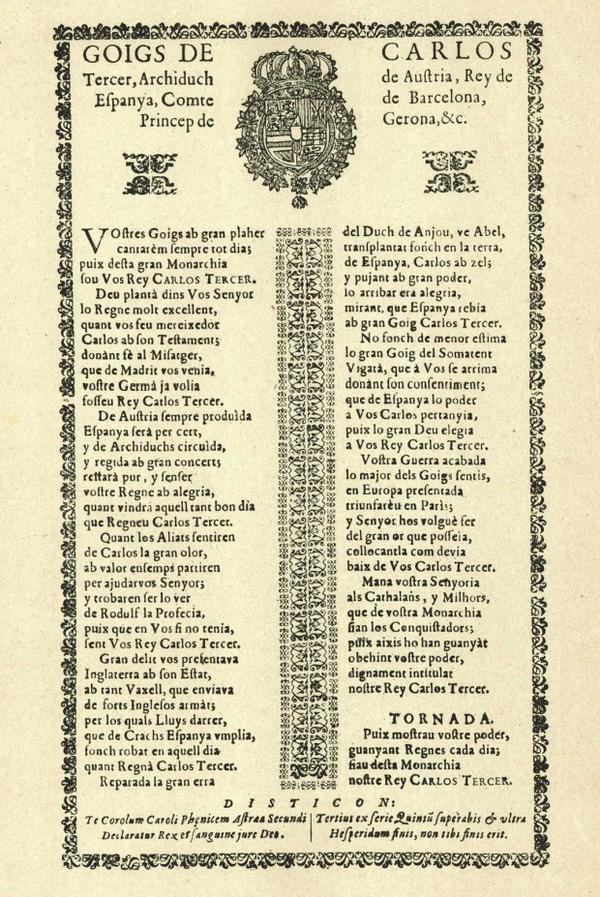 GOIGS DE CARLOS
Tercer, Archiduch de Austria, Rey de
Espanya, Comte de Barcelona,
Princep de Gerona, &c.
VOstres Goigs ab gran plaher
cantarèm sempre tot dia;
puix desta gran Monarchia
sou Vos Rey CARLOS TERCER.
Deu plantà dins Vos Senyor
lo Regne molt excellent,
quant vos feu mereixedor
Carlos ab son Testament;
donànt fè al Misatger,
que de Madrit vos venia,
vostre Germà ja volia
fosseu Rey Carlos Tercer.
De Austria sempre produìda
Espanya serà per cert,
y de Archiduchs circuìda,
y regida ab gran concert;
restarà pur, y sencer
vostre Regne ab alegria,
quant vindrà aquell tant bon dia
que Regneu Carlos Tercer.
Quant los Aliats sentiren
de Carlos la gran olor,
ab valor ensemps partiren
per ajudarvos Senyor;
y trobaren ser lo ver
de Rodulf la Profecia,
puix que en Vos fi no tenia,
sent Vos Rey Carlos Tercer.
Gran delit vos presentava
Inglaterra ab son Estat,
ab tant Vaxell, que enviava
de forts Inglesos armàt;
per los quals Lluys darrer,
que de Crachs Espanya umplia,
fonch robat en aquell dia
quant Regnà Carlos Tercer.
Reparada la gran erra
del Duch de Anjou, ve Abel,
transplantat fonch en la terra,
de Espanya, Carlos ab zel;
y pujant ab gran poder,
lo arribar era alegria,
mirant, que Espanya rebia
ab gran Goig Carlos Tercer.
No fonch de menor estima
lo gran Goig del Somatent
Vigatà, que à Vos se arrima
donànt son consentiment;
que de Espanya lo poder
à Vos Carlos pertanyia,
puix lo gran Deu elegia
a Vos Rey Carlos Tercer.
Vostra Guerra acabada
lo major dels Goigs sentis,
en Europa presentada
triunfarèu en Parìs;
y Senyor hos volguè ser
del gran or que posseìa,
collocantla com devia
baix de Vos Carlos Tercer.
Mana vostra Senyoria
als Cathalàns, y Milhors,
que de vostra Monarchia
sian los Conquistadors;
puix aixis ho han guanyàt
obehint vostre poder,
dignament intitulat
nostre Rey Carlos Tercer.
TORNADA.
Puix mostrau vostre poder,
guanyant Regnes cada dia;
siau desta Monarchia
nostre Rey CARLOS TERCER.
DISTICON:
Te Corolum Caroli Phenicem Astraa Secundi
Declaratur Rex et sanguine jure Deo.
Tertius ex serie Quintũ superabis & ultra
Hesperidum finis, non tibi finis erit.